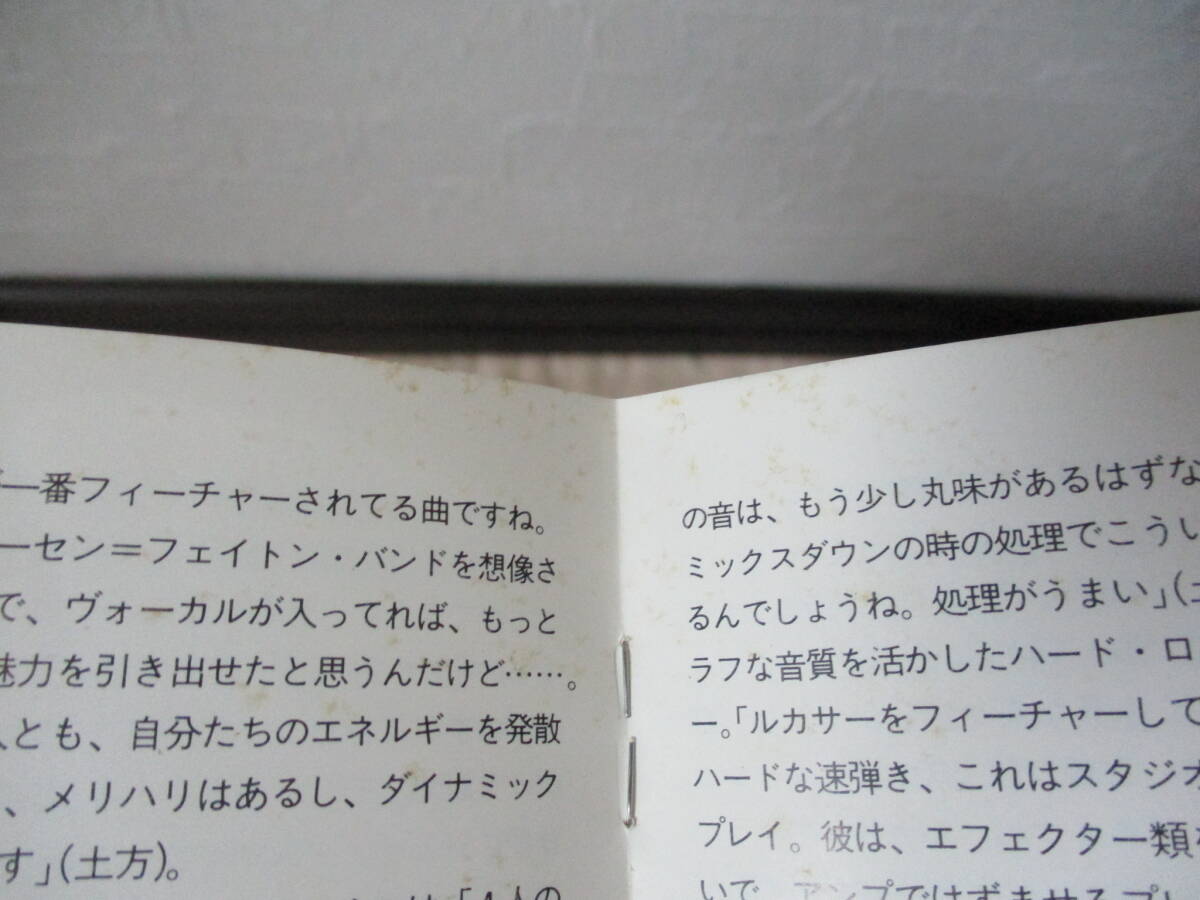 一番フィーチャーされてる曲ですね。
ーセン＝フェイトン・バンドを想像さ
で、ヴォーカルが入ってれば、もっと
魅力を引き出せたと思うんだけど……。
とも、自分たちのエネルギーを発散
、メリハリはあるし、ダイナミック
す」(土方)。
「4人の
の音は、もう少し丸味があるはずな
ミックスダウンの時の処理でこうい
るんでしょうね。処理がうまい」(
ラフな音質を活かしたハード・ロ
ー。「ルカサーをフィーチャーして
ハードな速弾き、これはスタジオ
プレイ。彼は、エフェクター類を
いで、アンプではずませるプレ